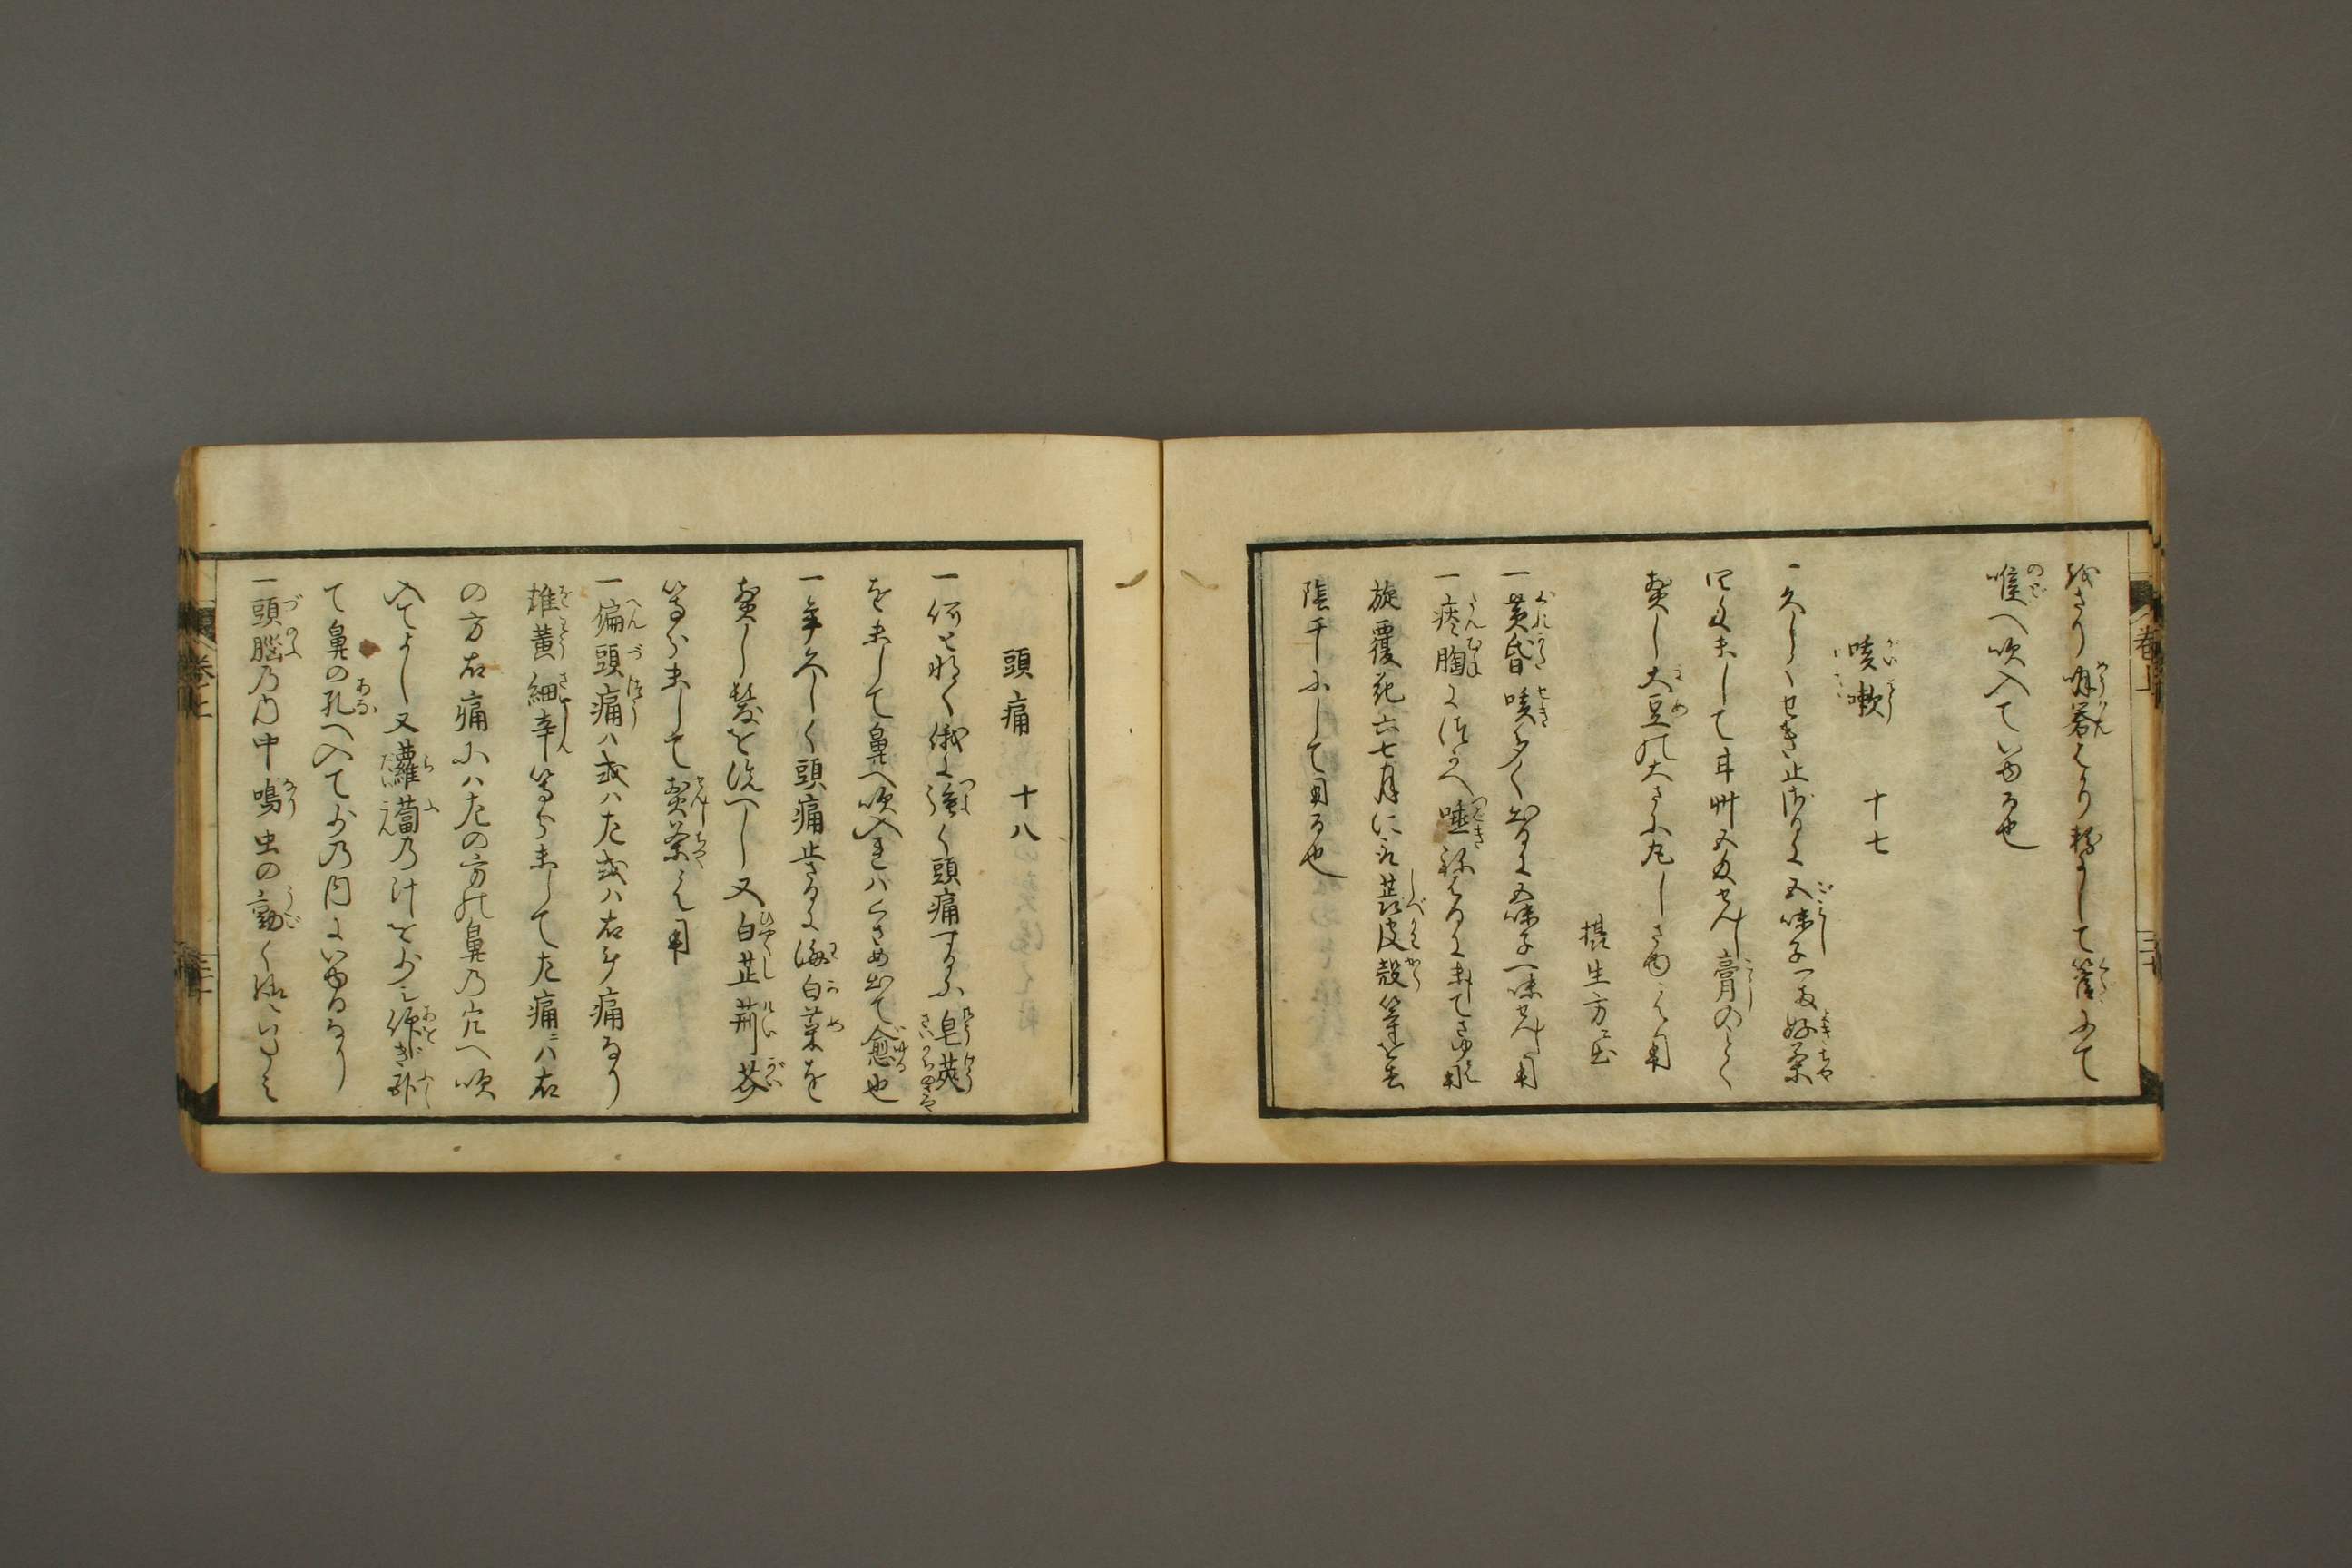 喉へ吹入て いゆる也
咳嗽 十七
一久しくせき止ざるに五味子一両好茶
四匁末して甘艸五匁せんし膏のことく
煎し大豆の大さに丸しさゆにて用
摂生方ニ出
一黄昏咳多く出るに五味子一味せんし用
一痰胸に 唾 ねばるに末してさゆにて用
旋覆花六七月に 皮殻等を去
陰干にして用る也
頭痛 十八
一何となく俄に強く頭痛するに皂莢
を末して鼻へ吹入ればくさめ出て愈也
一年久しく頭痛止ざるに海白菜を
煎し髪を洗へし又白芷荊芥
等分末して煎茶にて用
一偏頭痛ハ或ハ左或ハ右計痛なり
雄黄細辛等分末して左痛ニハ右
の方右痛にハ左の方の鼻の穴へ吹
入てよし又蘿蔔の汁を少し仰ぎ臥
て鼻の孔へ入て 少の内にいゆるなり
一頭脳の内中鳴虫の動く
巻上
三十